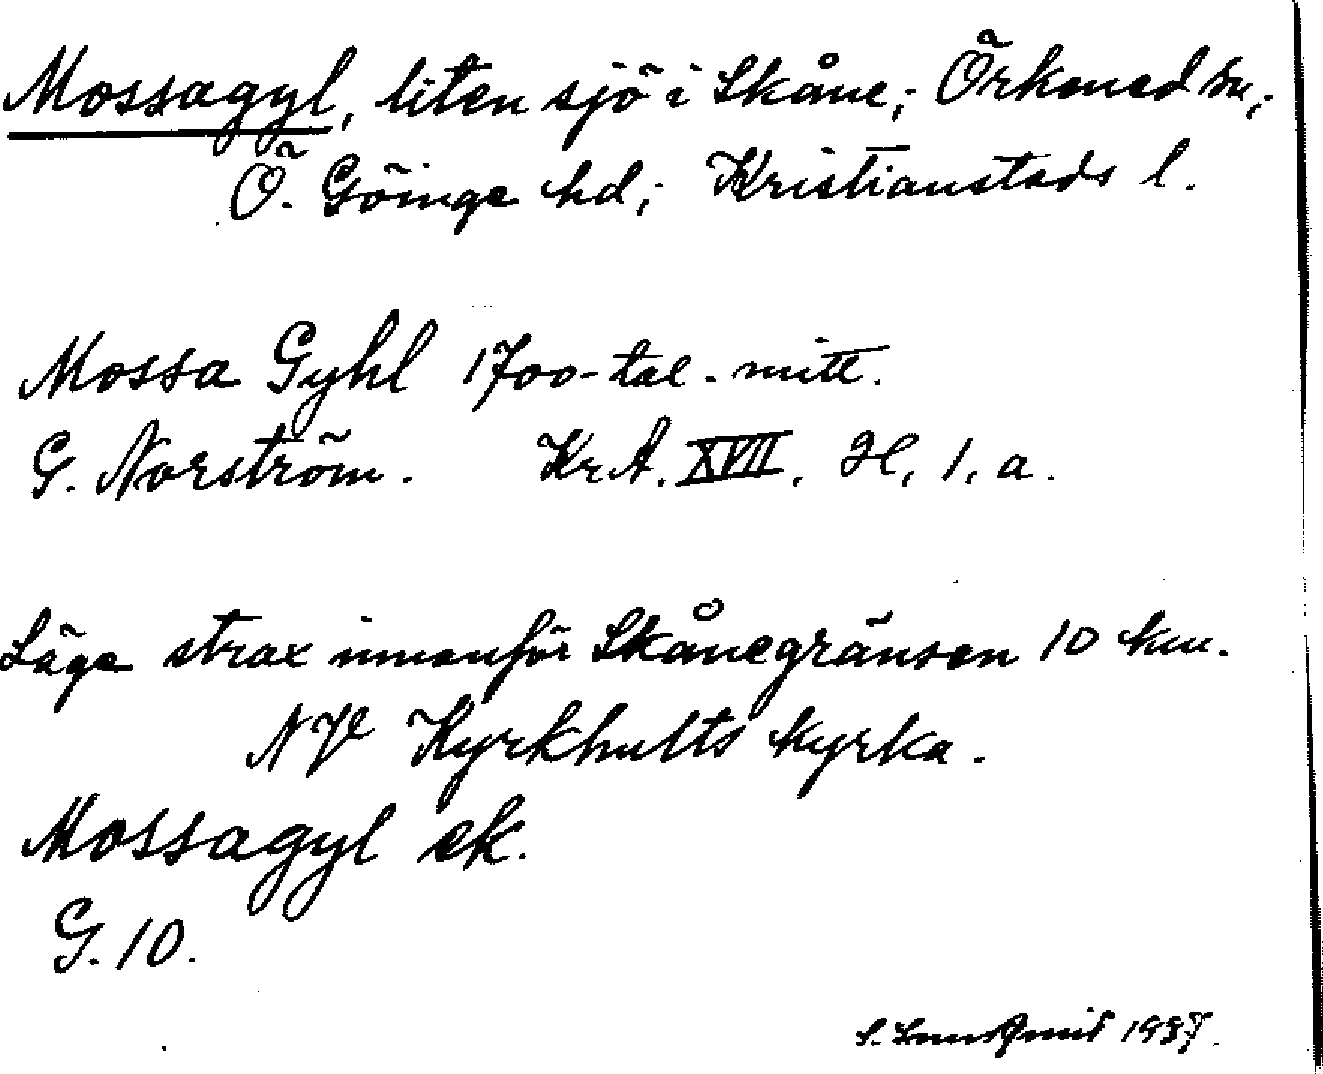 Mossagyl, liten sjö i Skåne; Örkened sn;
Ö. Göinge hd; Kristianstads l.
Mossa Gyhl 1700-tal. mitt.
G. Norström. Kr.A. XVII. H. 1. a.
Läge strax innanför Skånegränsen 10 km.
NV Kyrkhults kyrka.
Mossagyl ek.
G. 10.
1937.